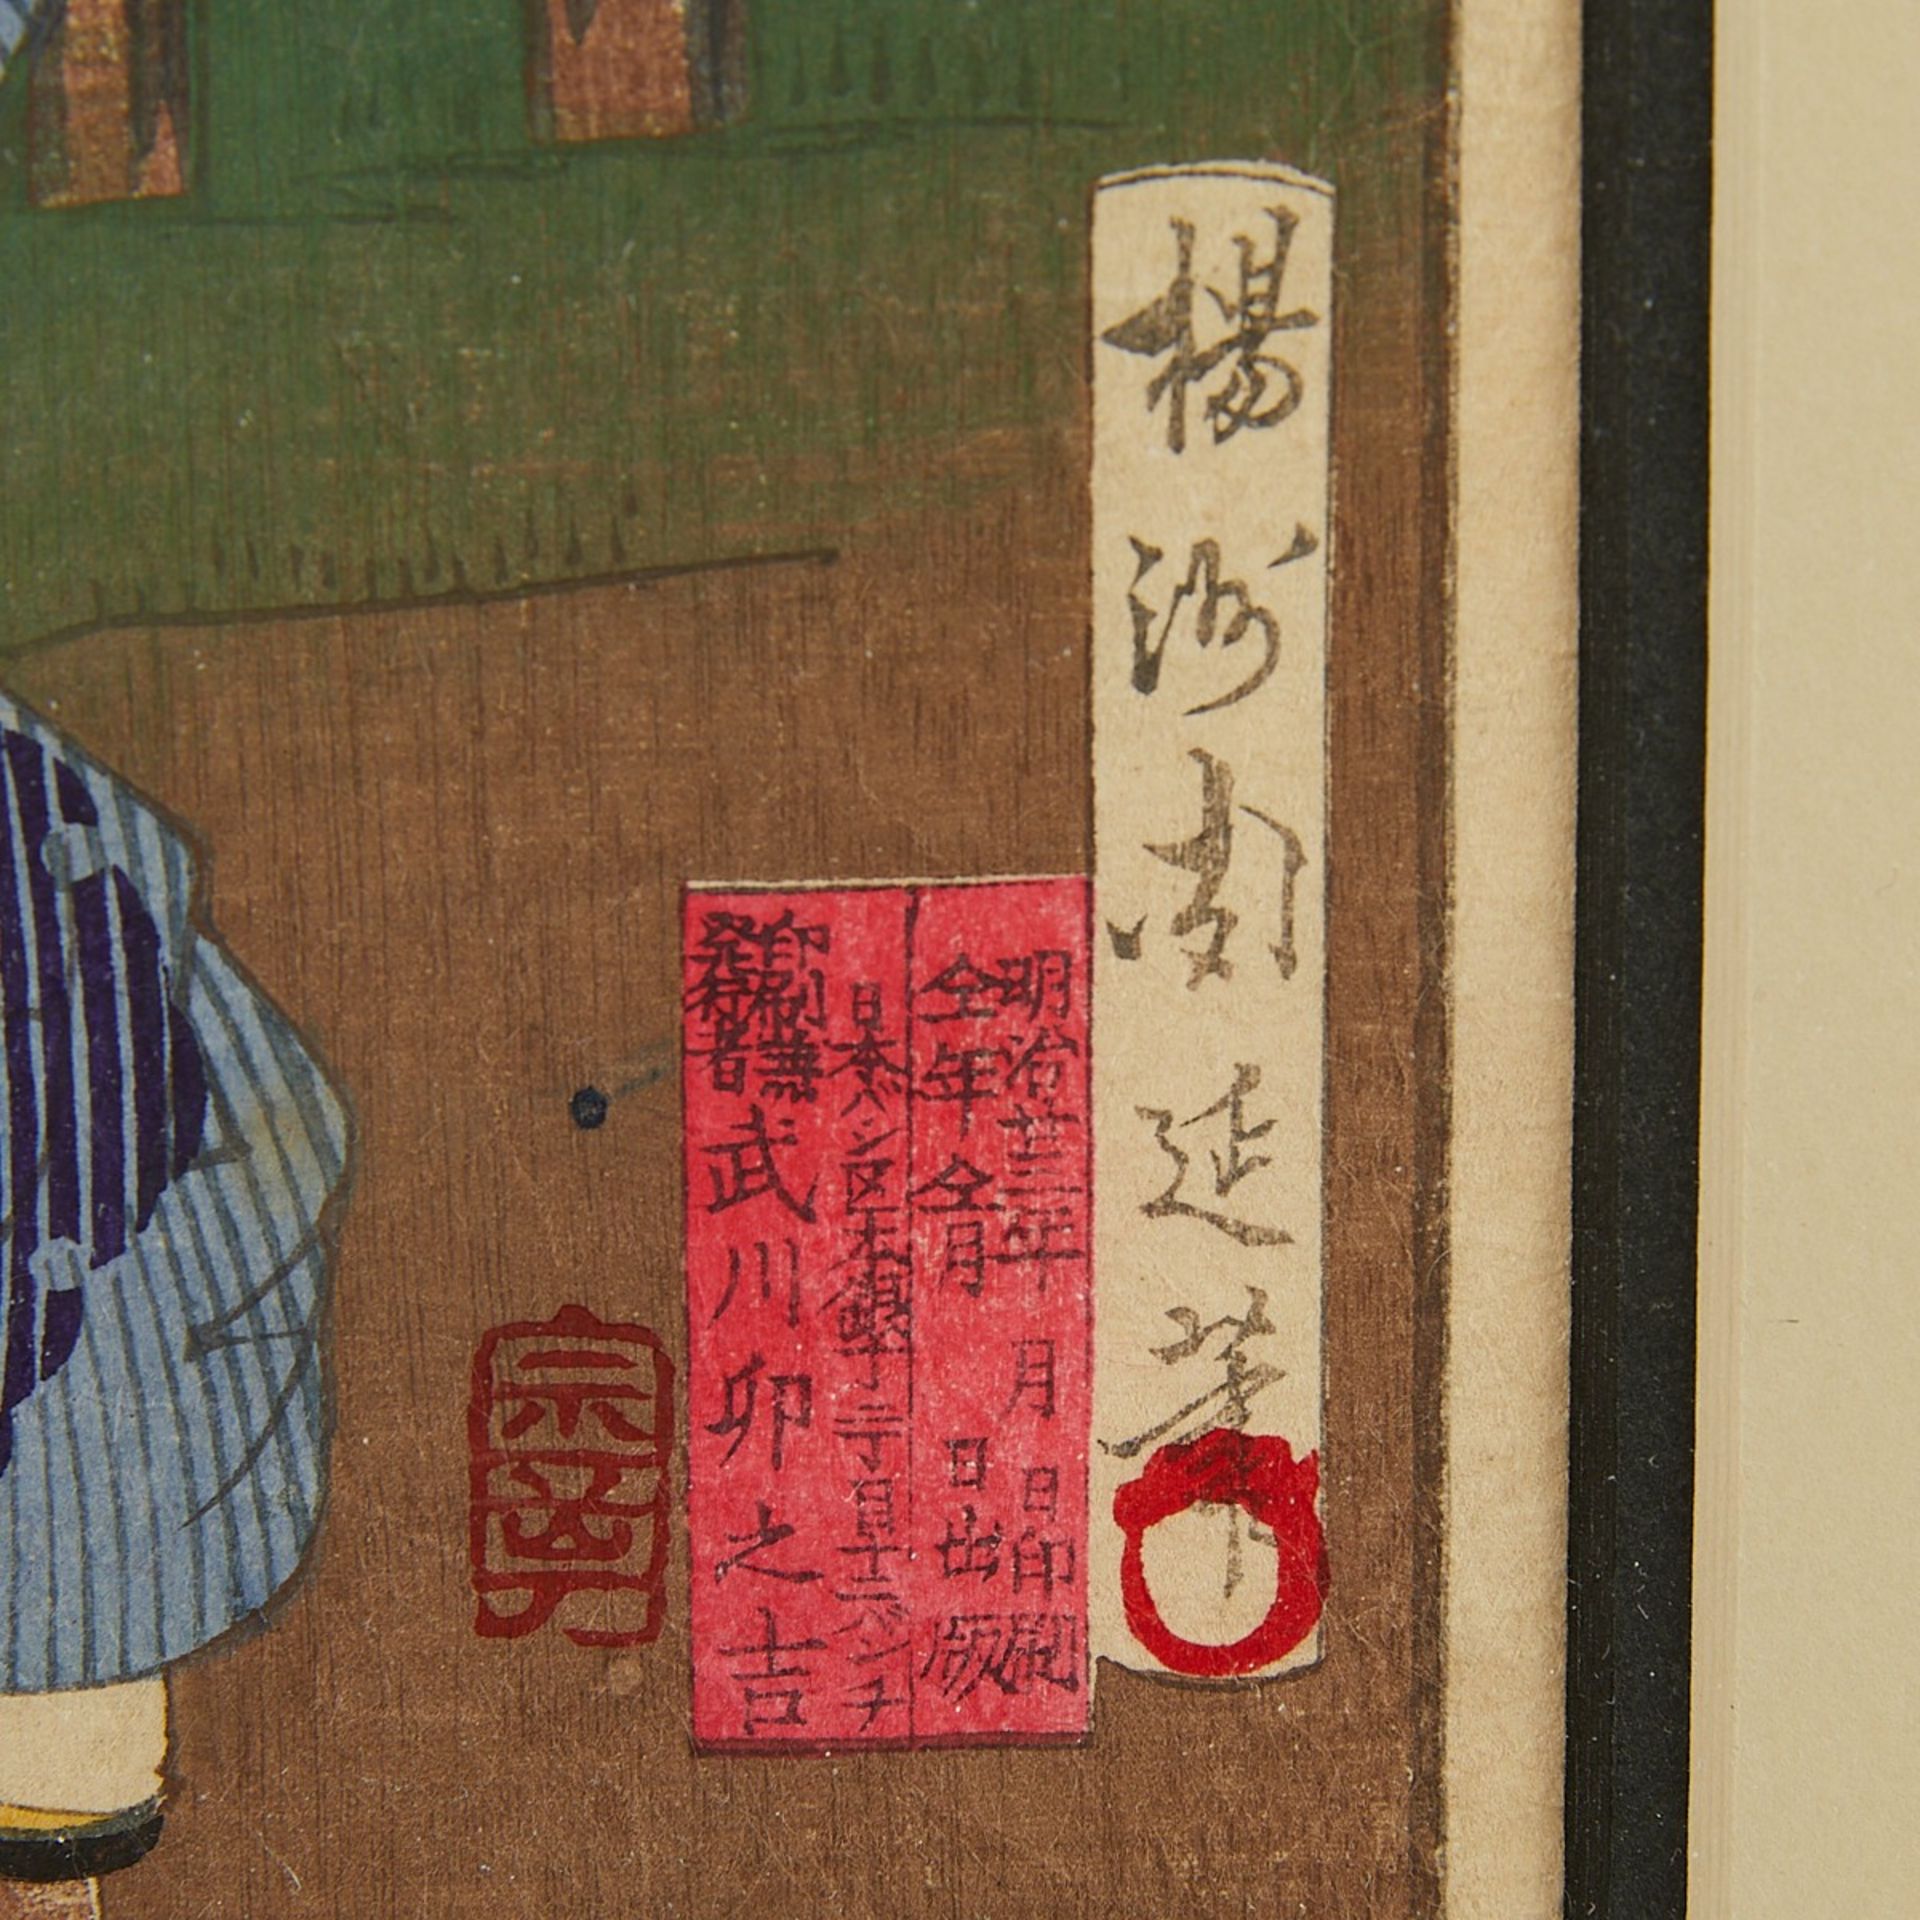 楊洲周延筆
明治廿三年 月 日印刷
仝年仝月 日出版
日本バシ区本銀丁二丁目十二バンチ
印刷兼
発行者
武川卯之吉